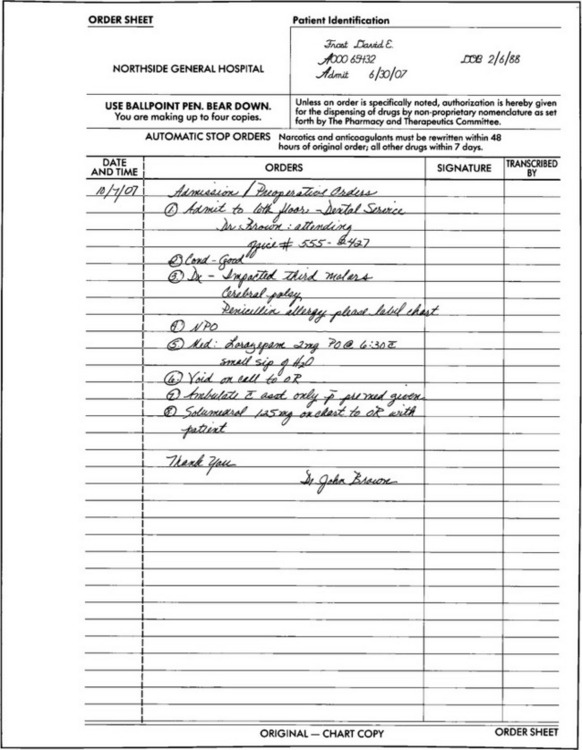 ORDER SHEET
Patient Identification
Frost David E.
A000 69432 DOB 2/6/88
Admit 6/30/07
NORTHSIDE GENERAL HOSPITAL
USE BALLPOINT PEN. BEAR DOWN.
You are making up to four copies.
Unless an order is specifically noted, authorization is hereby given
for the dispensing of drugs by non-proprietary nomenclature as set
forth by The Pharmacy and Therapeutics Committee.
AUTOMATIC STOP ORDERS Narcotics and anticoagulants must be rewritten within 48
hours of original order; all other drugs within 7 days.
DATE
AND TIME
ORDERS
SIGNATURE
TRANSCRIBED
BY
10/7/07 Admission / Preoperative Orders
① Admit to 10th floor – Dental Service
Dr. Brown : attending
office # 555-2427
② Cond - Good
③ Dx – Impacted third molars
Cerebral palsy
Penicillin allergy please label chart
④ NPO
⑤ Med: Lorazepam 2mg PO @ 6:30 c̄
small sip of H2O
⑥ Void on call to OR
⑦ Ambulate c̄ asst only p̄ pre med given
⑧ Solumedrol 125 mg on chart to OR with
patient
Thank You
Dr John Brown
ORIGINAL — CHART COPY
ORDER SHEET